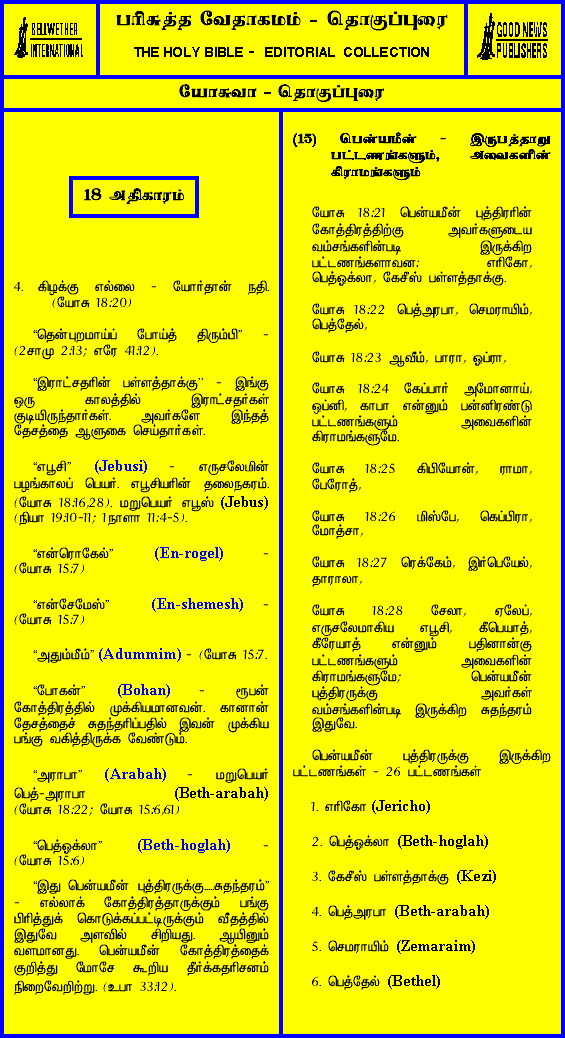 BELLWETHER
INTERNATIONAL
பரிசுத்த வேதாகமம் - தொகுப்புரை
THE HOLY BIBLE - EDITORIAL COLLECTION
GOOD NEWS
PUBLISHERS
யோசுவா - தொகுப்புரை
18 அதிகாரம்
4. கிழக்கு எல்லை - யோர்தான் நதி.
(யோசு 18:20)
“தென்புறமாய்ப் போய்த் திரும்பி” -
(2சாமு 2:13; எரே 41:12).
“இராட்சதரின் பள்ளத்தாக்கு” - இங்கு
ஒரு காலத்தில் இராட்சதர்கள்
குடியிருந்தார்கள். அவர்களே இந்தத்
தேசத்தை ஆளுகை செய்தார்கள்.
“எபூசி” (Jebusi) - எருசலேமின்
பழங்காலப் பெயர். எபூசியரின் தலைநகரம்.
(யோசு 18:16,28). மறுபெயர் எபூஸ் (Jebus)
(நியா 19:10-11; 1நாளா 11:4-5).
“என்ரொகேல்” (En-rogel) -
(யோசு 15:7)
“என்சேமேஸ்” (En-shemesh) -
(யோசு 15:7)
“அதும்மீம்” (Adummim) - (யோசு 15:7.
“போகன்” (Bohan) - ரூபன்
கோத்திரத்தில் முக்கியமானவன். கானான்
தேசத்தைச் சுதந்தரிப்பதில் இவன் முக்கிய
பங்கு வகித்திருக்க வேண்டும்.
“அராபா” (Arabah) - மறுபெயர்
பெத்-அராபா (Beth-arabah)
(யோசு 18:22; யோசு 15:6,61)
“பெத்ஓக்லா” (Beth-hoglah) -
(யோசு 15:6)
“இது பென்யமீன் புத்திரருக்கு....சுதந்தரம்”
- எல்லாக் கோத்திரத்தாருக்கும் பங்கு
பிரித்துக் கொடுக்கப்பட்டிருக்கும் வீதத்தில்
இதுவே அளவில் சிறியது. ஆயினும்
வளமானது. பென்யமீன் கோத்திரத்தைக்
குறித்து மோசே கூறிய தீர்க்கதரிசனம்
நிறைவேறிற்று. (உபா 33:12).
(15) பென்யமீன் - இருபத்தாறு
பட்டணங்களும், அவைகளின்
கிராமங்களும்
யோசு 18:21 பென்யமீன் புத்திரரின்
கோத்திரத்திற்கு அவர்களுடைய
வம்சங்களின்படி இருக்கிற
பட்டணங்களாவன: எரிகோ,
பெத்ஓக்லா, கேசீஸ் பள்ளத்தாக்கு.
யோசு 18:22 பெத்அரபா, செமராயிம்,
பெத்தேல்,
யோசு 18:23 ஆவீம், பாரா, ஓப்ரா,
யோசு 18:24 கேப்பார் அமோனாய்,
ஓப்னி, காபா என்னும் பன்னிரண்டு
பட்டணங்களும் அவைகளின்
கிராமங்களுமே.
யோசு 18:25 கிபியோன், ராமா,
பேரோத்,
யோசு 18:26 மிஸ்பே, கெப்பிரா,
மோத்சா,
யோசு 18:27 ரெக்கேம், இர்பெயேல்,
தாராலா,
யோசு 18:28 சேலா, ஏலேப்,
எருசலேமாகிய எபூசி, கீபெயாத்,
கீரேயாத் என்னும் பதினான்கு
பட்டணங்களும் அவைகளின்
கிராமங்களுமே; பென்யமீன்
புத்திரருக்கு அவர்கள்
வம்சங்களின்படி இருக்கிற சுதந்தரம்
இதுவே.
பென்யமீன் புத்திரருக்கு இருக்கிற
பட்டணங்கள் - 26 பட்டணங்கள்
1. எரிகோ (Jericho)
2. பெத்ஓக்லா (Beth-hoglah)
3. கேசீஸ் பள்ளத்தாக்கு (Kezi)
4. பெத்அரபா (Beth-arabah)
5. செமராயிம் (Zemaraim)
6. பெத்தேல் (Bethel)